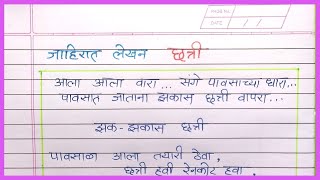 जाहिरात लेखन छत्री
आला आला वारा... संगे पावसाच्या धारा...
पावसात जाताना झकास छत्री वापरा...
झक-झकास छत्री
पावसाळा आला तयारी ठेवा,
छत्री हवी रेनकोट हवा,